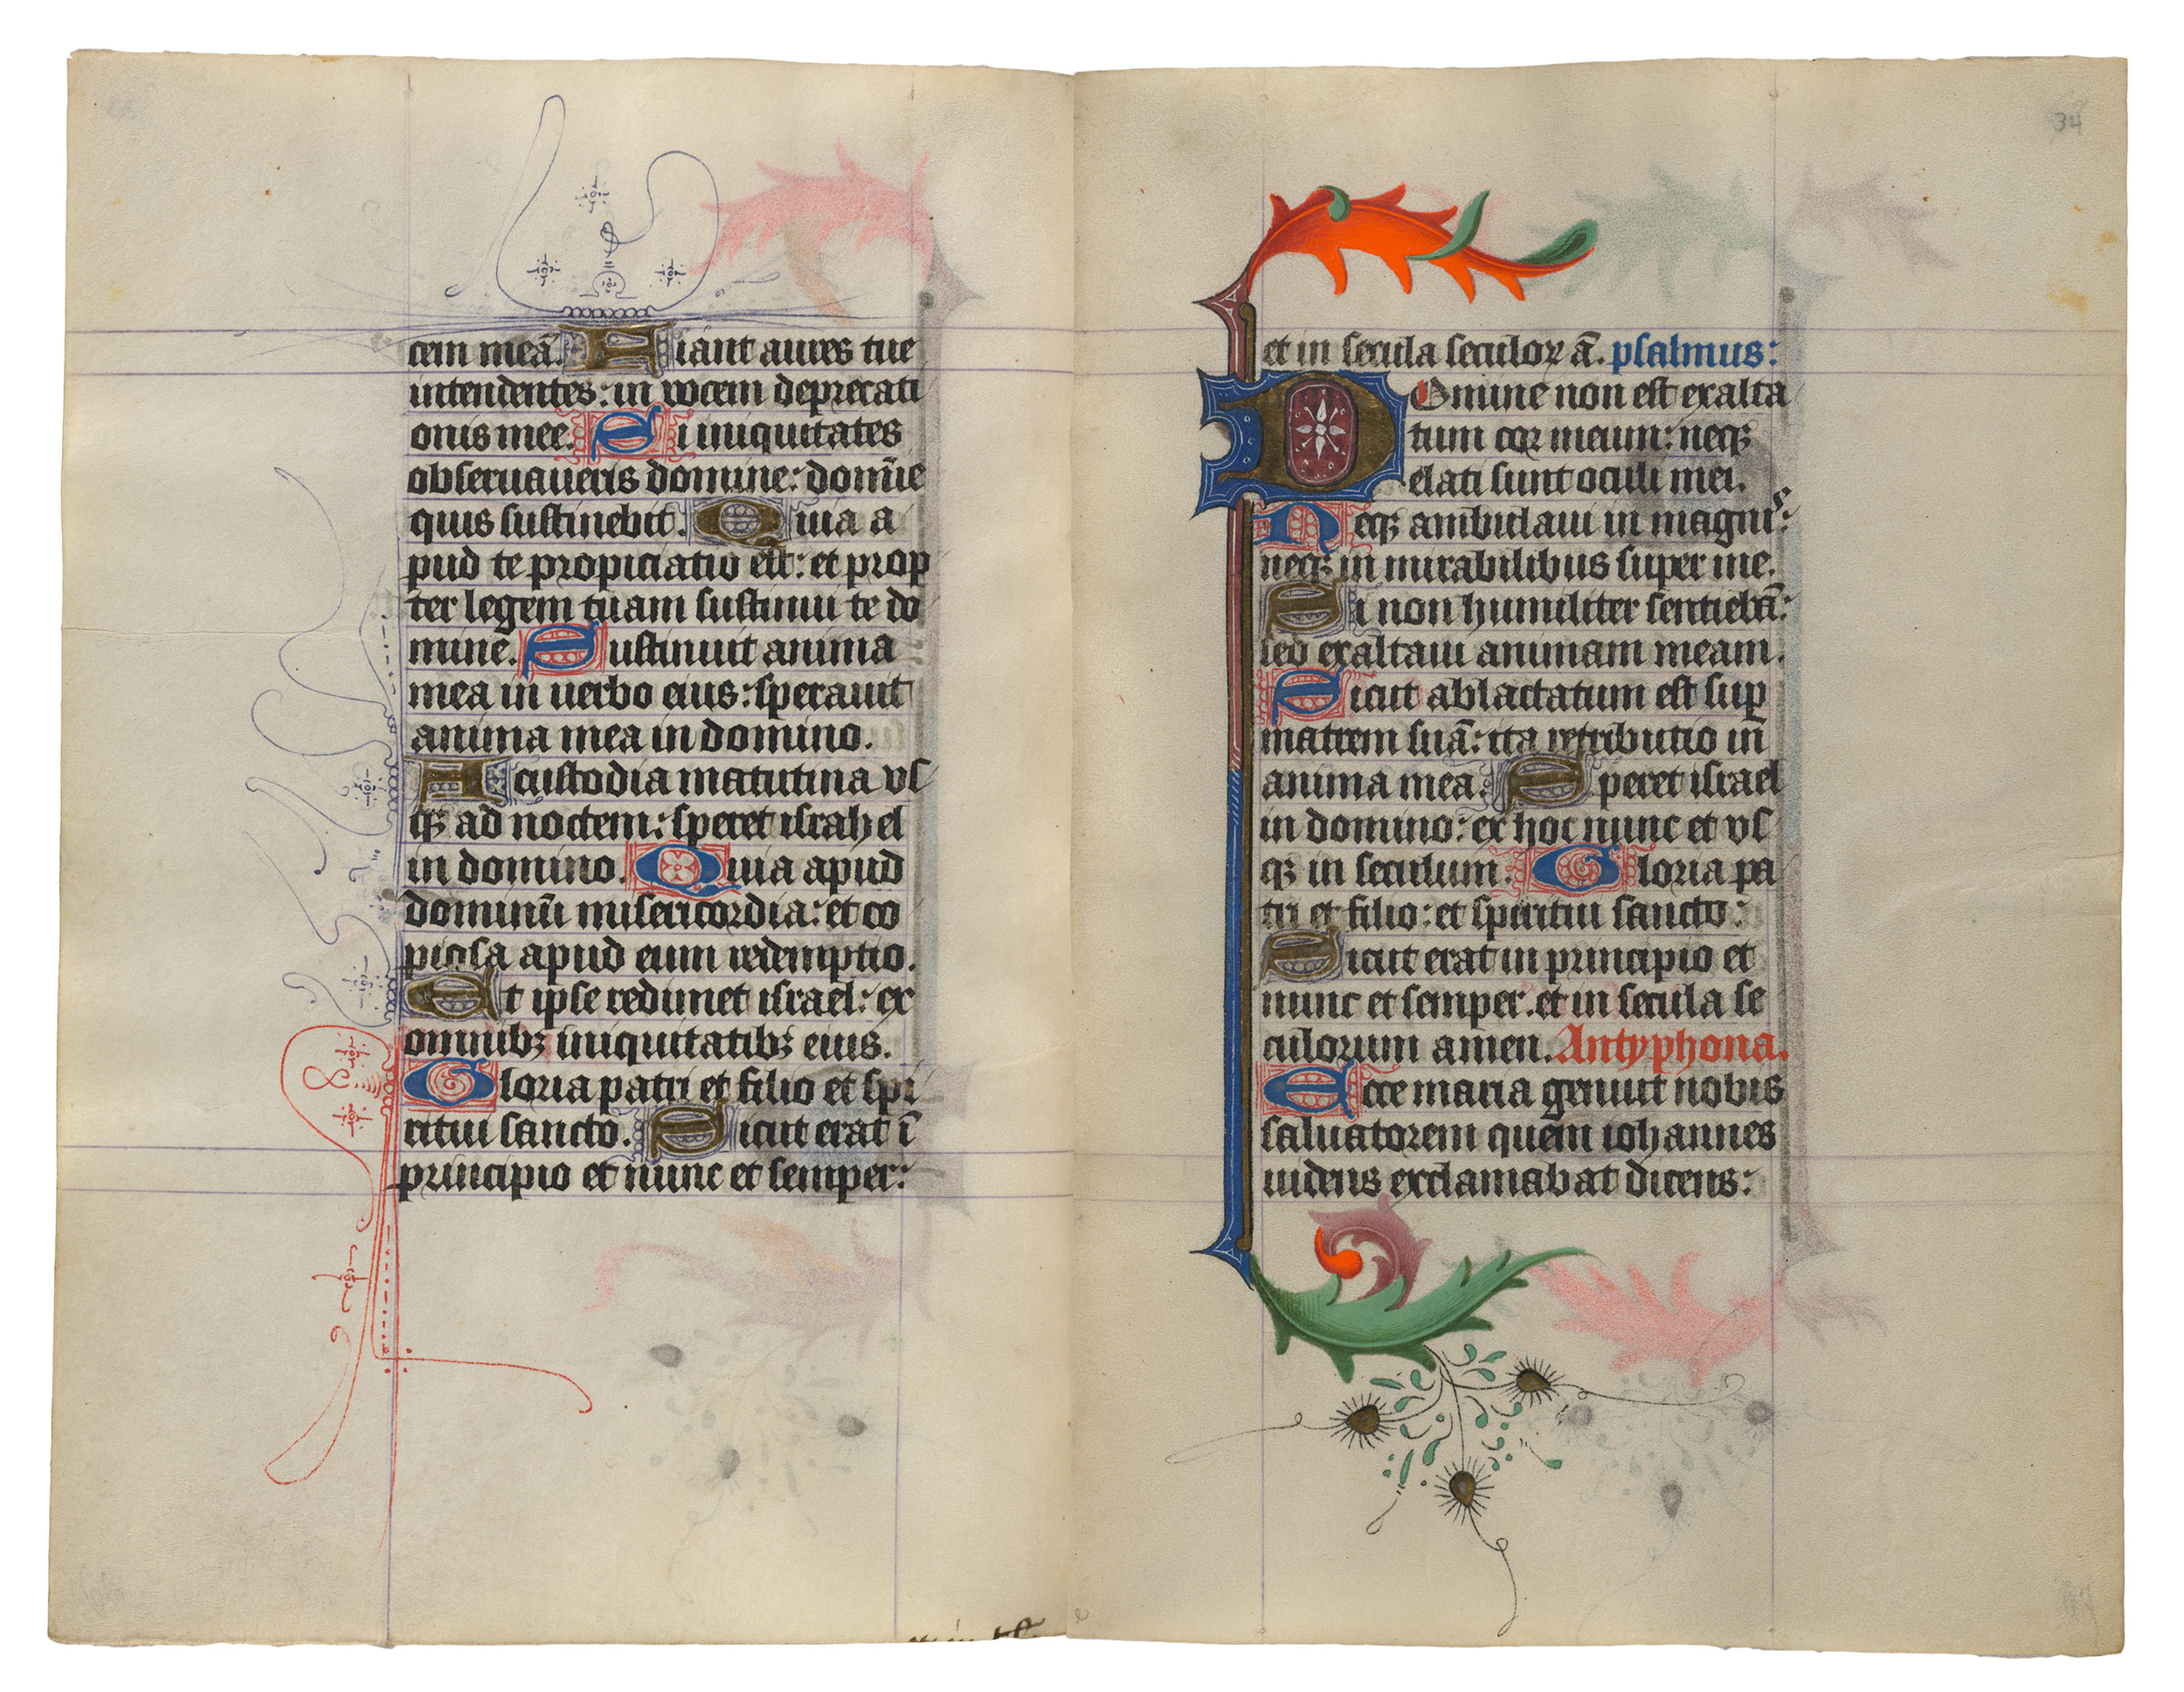 cem meā. Fiant aures tue
intendentes: in vocem deprecati
onis mee. Si iniquitates
obseruaueris domine: domīe
quis sustinebit. Quia a
pud te propiciatio est: et prop
ter legem tuam sustinui te do
mine. Sustinuit anima
mea in uerbo eius: sperauit
anima mea in domino.
A custodia matutina vſ
qꝫ ad noctem: speret israhel
in domino. Quia apud
dominū misericordia: et co
piosa apud eum redemptio.
Et ipse redimet israel: ex
omnibꝫ iniquitatibꝫ eius.
Gloria patri et filio et spi
ritui sancto. Sicut erat ī
principio et nunc et semper:
34
et in secula seculoꝝ ā. psalmus:
Domine non est exalta
tum cor meum: neqꝫ
elati sunt oculi mei.
Neqꝫ ambulaui in magnis:
neqꝫ in mirabilibus super me.
Si non humiliter sentiebā:
sed exaltaui animam meam.
Sicut ablactatum est suꝑ
matrem suā: ita retributio in
anima mea. Speret israel
in domino: ex hoc nunc et vſ
qꝫ in seculum. Gloria pa
tri et filio: et spiritui sancto:
Sicut erat in principio et
nunc et semper. et in secula se
culorum amen. Antyphona.
Ecce maria genuit nobis
saluatorem quem iohannes
uidens exclamabat dicens: